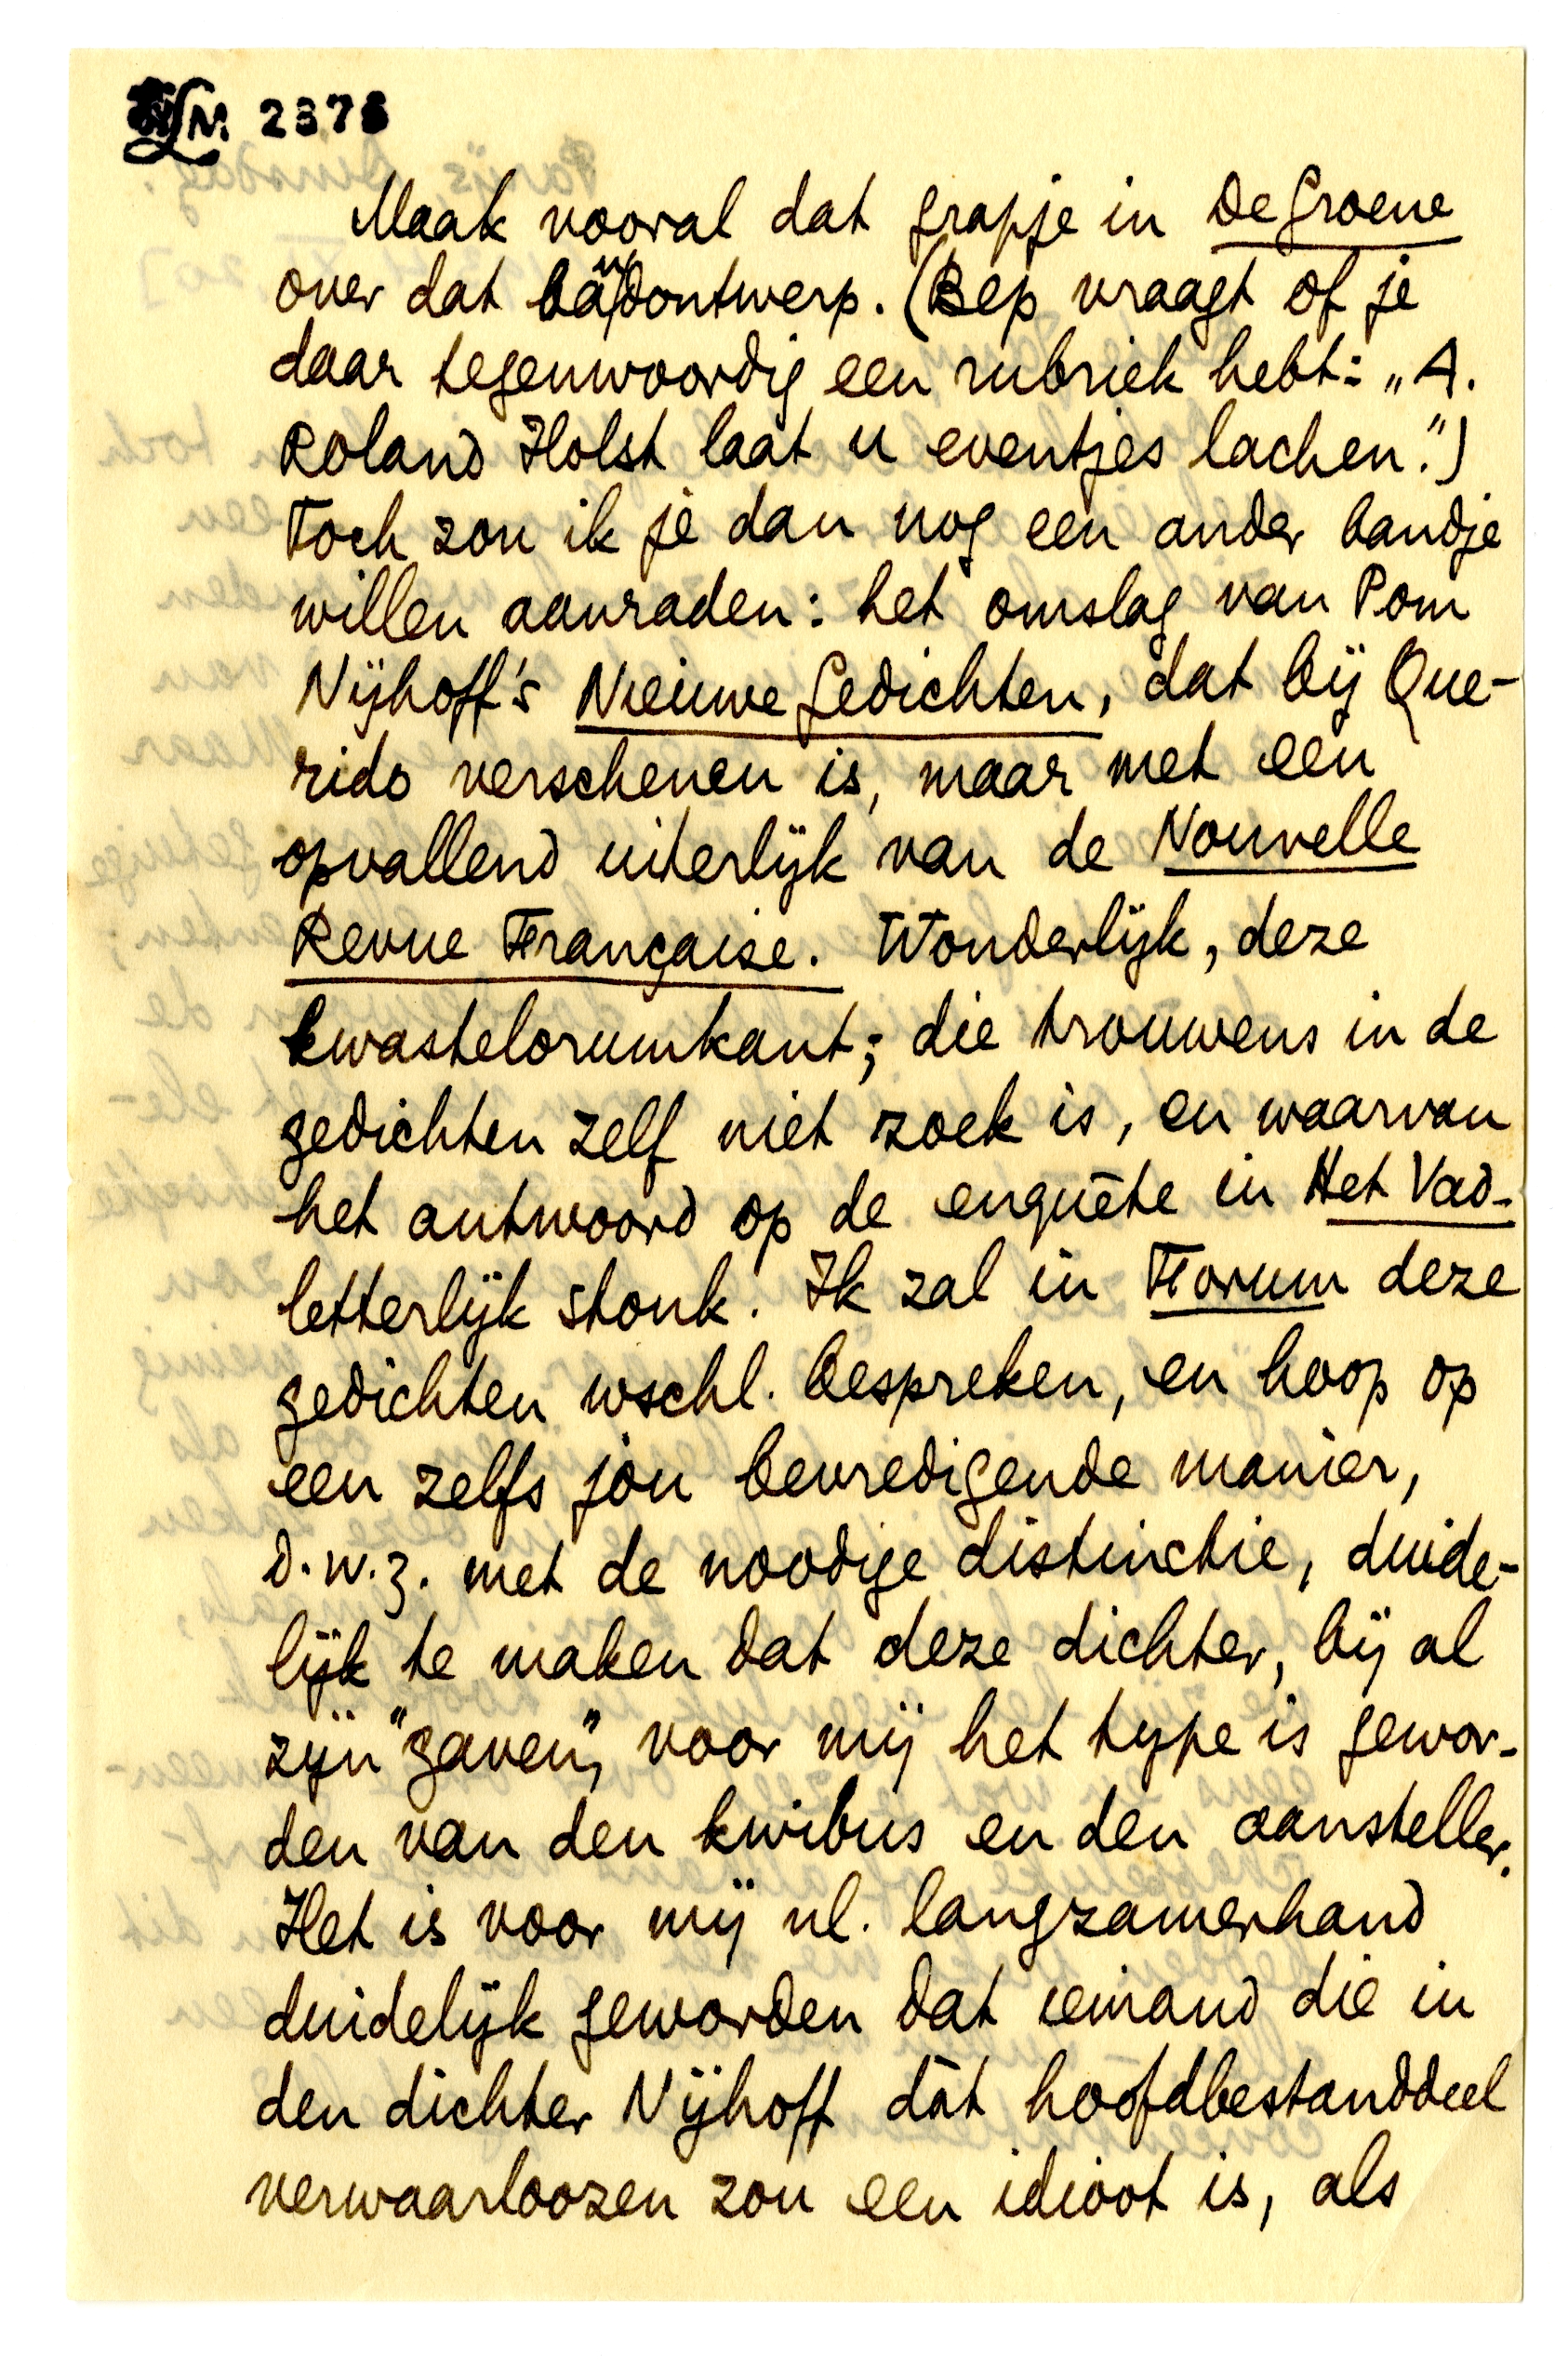 LM 2378
Maak vooral dat grapje in De Groene
over dat bandontwerp. (Bep vraagt of je
daar tegenwoordig een rubriek hebt: „A.
Roland Holst laat u eventjes lachen.”)
Toch zou ik je dan nog een ander bandje
willen aanraden: het omslag van Pom
Nijhoff's Nieuwe Gedichten, dat bij Que-
rido verschenen is, maar met een
opvallend uiterlijk van de Nouvelle
Revue Française. Wonderlijk, deze
kwastelorumkant; die trouwens in de
gedichten zelf niet zoek is, en waarvan
het antwoord op de enquête in Het Vad.
letterlijk stonk. Ik zal in Forum deze
gedichten wschl. bespreken, en hoop op
een zelfs jou bevredigende manier,
d.w.z. met de noodige distinctie, duide-
lijk te maken dat deze dichter, bij al
zijn "gaven", voor mij het type is gewor-
den van den kwibus en den aansteller.
Het is voor mij nl. langzamerhand
duidelijk geworden dat iemand die in
den dichter Nijhoff dàt hoofdbestanddeel
verwaarloozen zou een idioot is, als